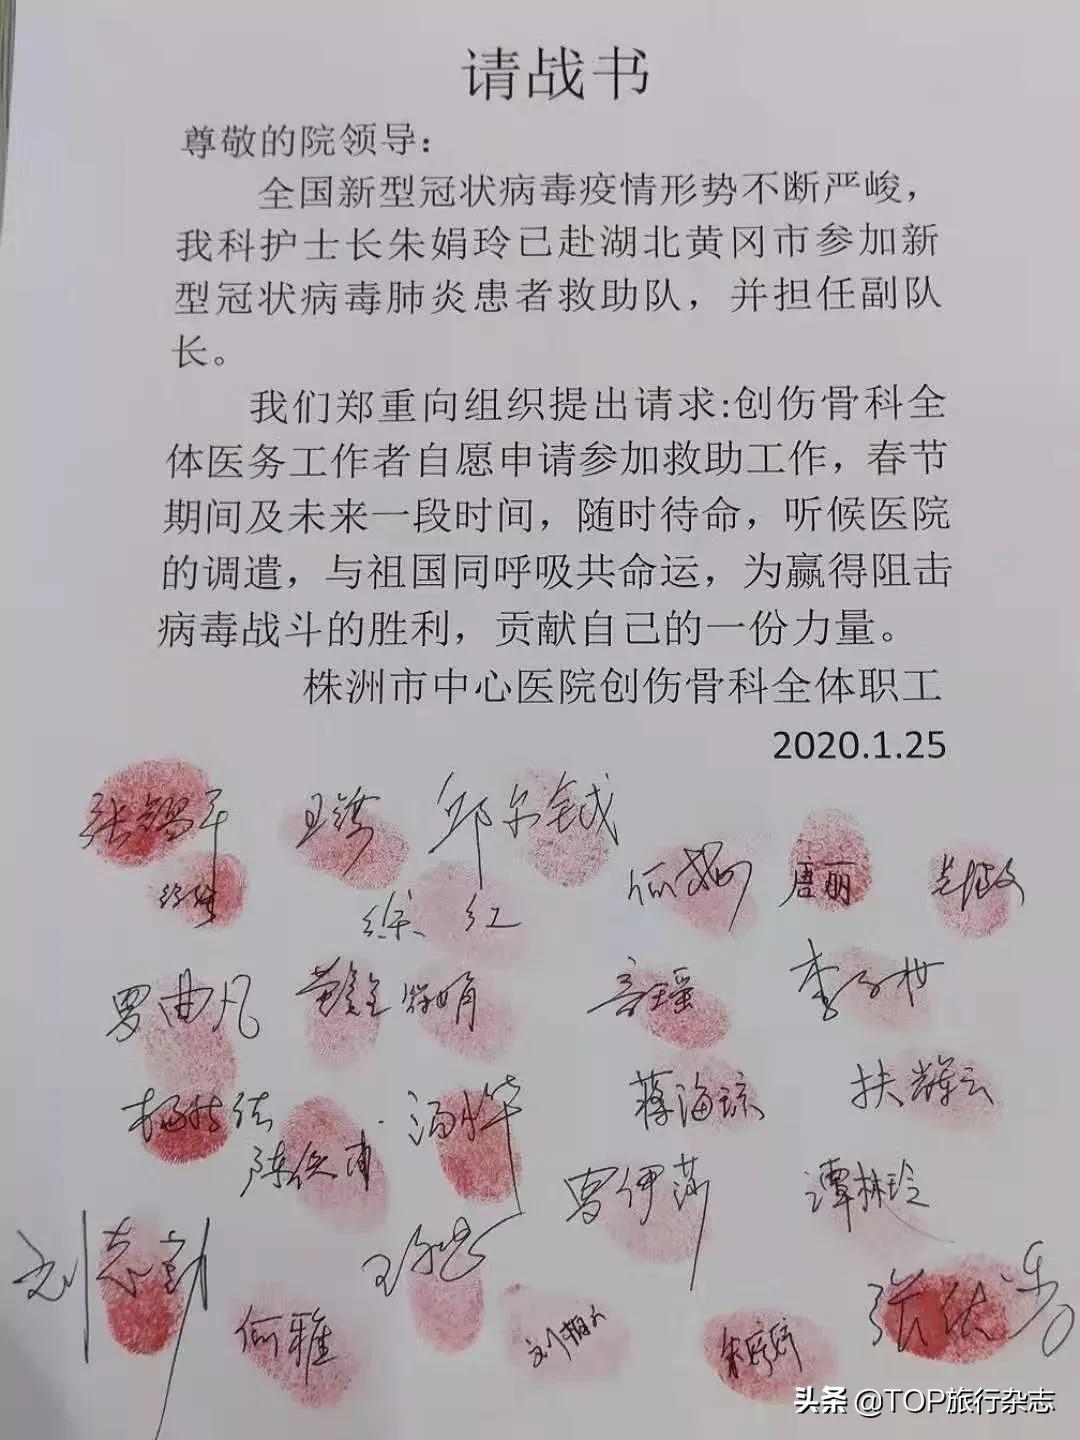 请战书
尊敬的院领导：
全国新型冠状病毒疫情形势不断严峻，
我科护士长朱娟玲已赴湖北黄冈市参加新
型冠状病毒肺炎患者救助队，并担任副队
长。
我们郑重向组织提出请求:创伤骨科全
体医务工作者自愿申请参加救助工作，春节
期间及未来一段时间，随时待命，听候医院
的调遣，与祖国同呼吸共命运，为赢得阻击
病毒战斗的胜利，贡献自己的一份力量。
株洲市中心医院创伤骨科全体职工
2020.1.25
唐丽
徐红
罗曲凡
蒋海琼 扶辉云
曹伊莎 谭林玲
刘志剑
何雅
头条 @TOP旅行杂志